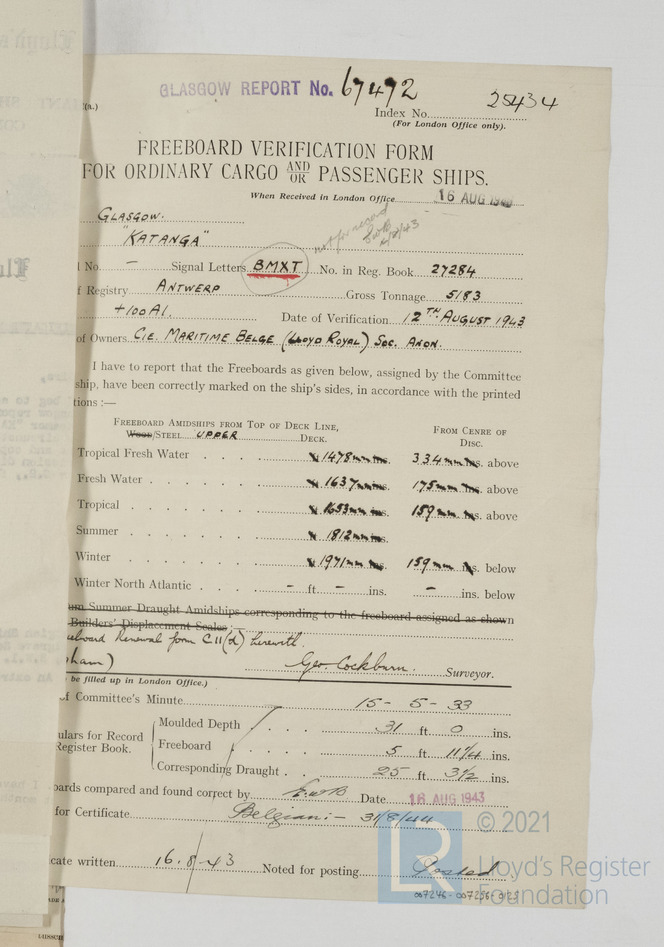 (a.)
GLASGOW REPORT No. 67472
25434
Index No.
(For London Office only).
FREEBOARD VERIFICATION FORM
FOR ORDINARY CARGO AND/OR PASSENGER SHIPS.
When Received in London Office 16 AUG 1943
GLASGOW.
"KATANGA"
not for record
No. — Signal Letters BMXT No. in Reg. Book 27284
f Registry ANTWERP Gross Tonnage 5183
+100A1. Date of Verification 12TH AUGUST 1943
of Owners CIE. MARITIME BELGE (LLOYD ROYAL) SOC. ANON.
I have to report that the Freeboards as given below, assigned by the Committee
ship, have been correctly marked on the ship's sides, in accordance with the printed
tions :—
FREEBOARD AMIDSHIPS FROM TOP OF DECK LINE,
WOOD/STEEL UPPER DECK.
FROM CENRE OF
DISC.
Tropical Fresh Water 1478mm 334mm ins. above
Fresh Water 1637mm 175mm ins. above
Tropical 1653mm 159mm ins. above
Summer 1812mm
Winter 1971mm 159mm ins. below
Winter North Atlantic – ft – ins. – ins. below
um Summer Draught Amidships corresponding to the freeboard assigned as shown
Builders' Displacement Scales :—
eeboard Renewal form C11(d) herewith.
ham)
Geo. Cockburn. Surveyor.
be filled up in London Office.)
of Committee's Minute 15 - 5 - 33
ulars for Record
Register Book.
Moulded Depth 31 ft 0 ins.
Freeboard 5 ft 11¼ ins.
Corresponding Draught 25 ft 3½ ins.
oards compared and found correct by E.W.B Date 16 AUG 1943
for Certificate Belgian - 31/8/44
cate written 16.8.43 Noted for posting Posted
© 2021
Lloyd's Register
Foundation
007246-007256-0125